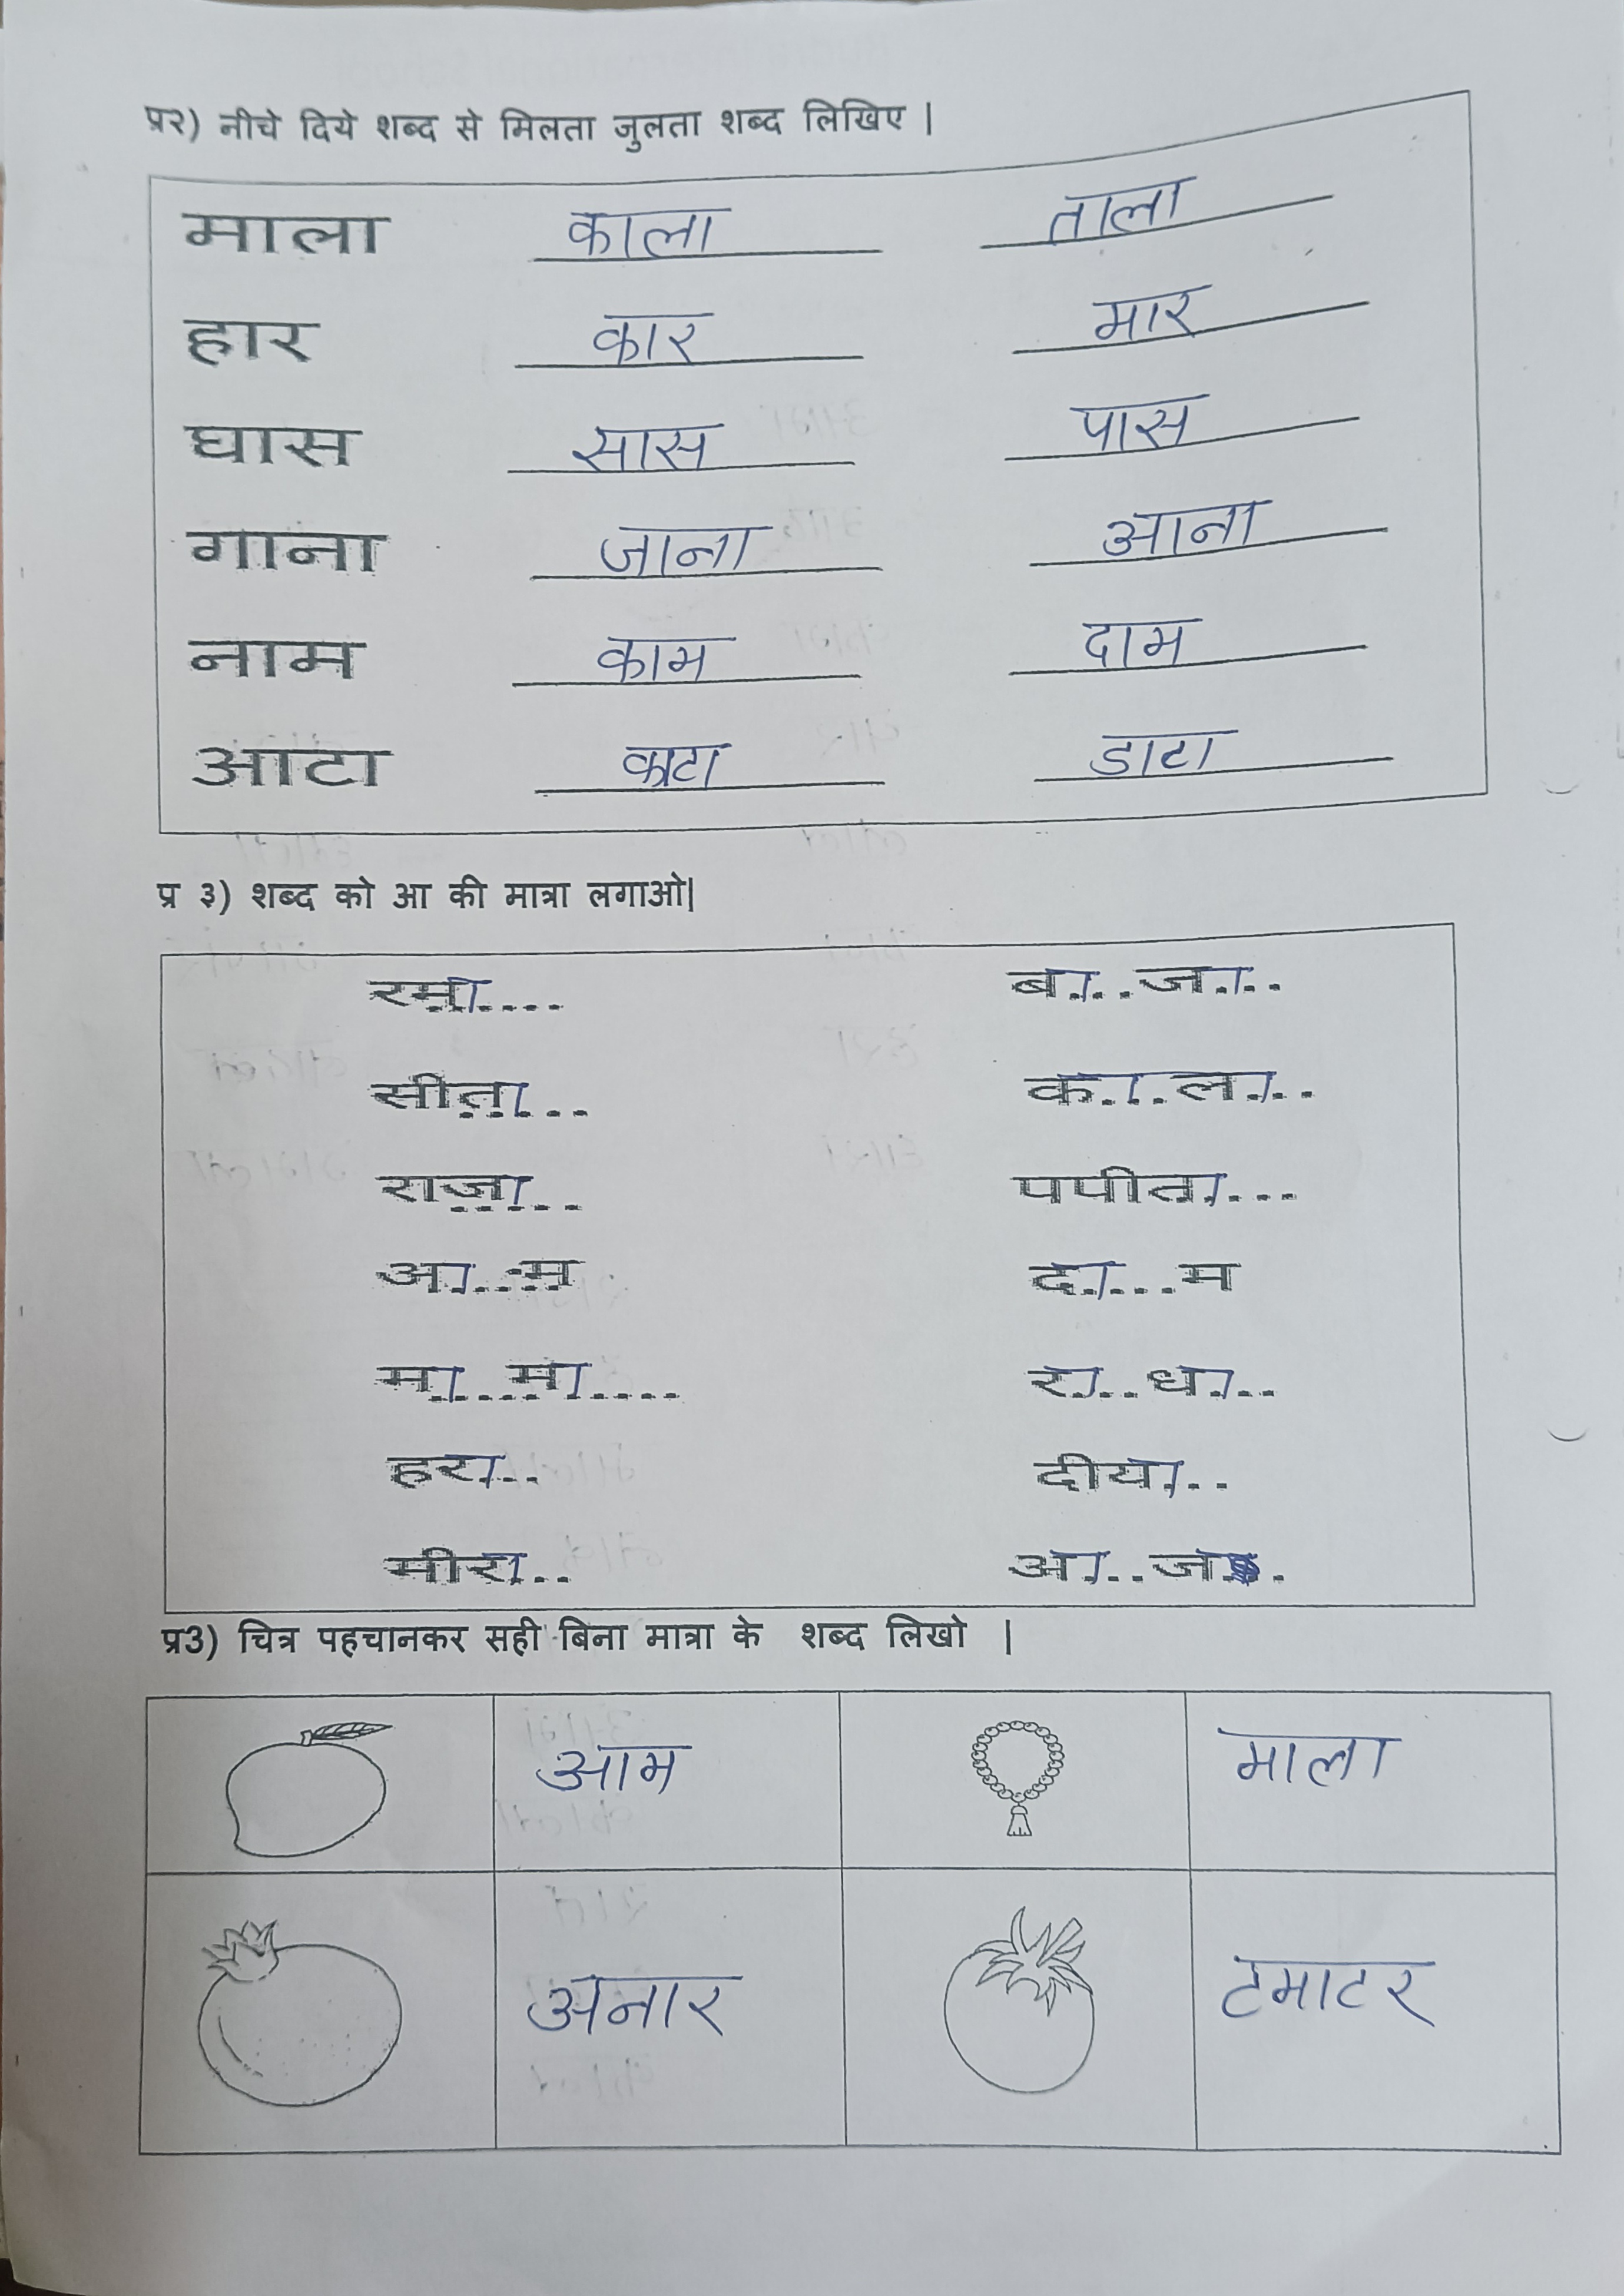 प्र२) नीचे दिये शब्द से मिलता जुलता शब्द लिखिए |
माला काला ताला
हार कार मार
घास सास पास
गाना जाना आना
नाम काम दाम
आटा काटा डाटा
प्र ३) शब्द को आ की मात्रा लगाओ|
रमा.... बा..जा..
सीता.. का.ला..
राजा.. पपीता...
आ...म दा...म
मा...मा.... रा..धा..
हरा.. दीया..
मीरा.. आ..ज.
प्र3) चित्र पहचानकर सही बिना मात्रा के शब्द लिखो |
आम माला
अनार टमाटर